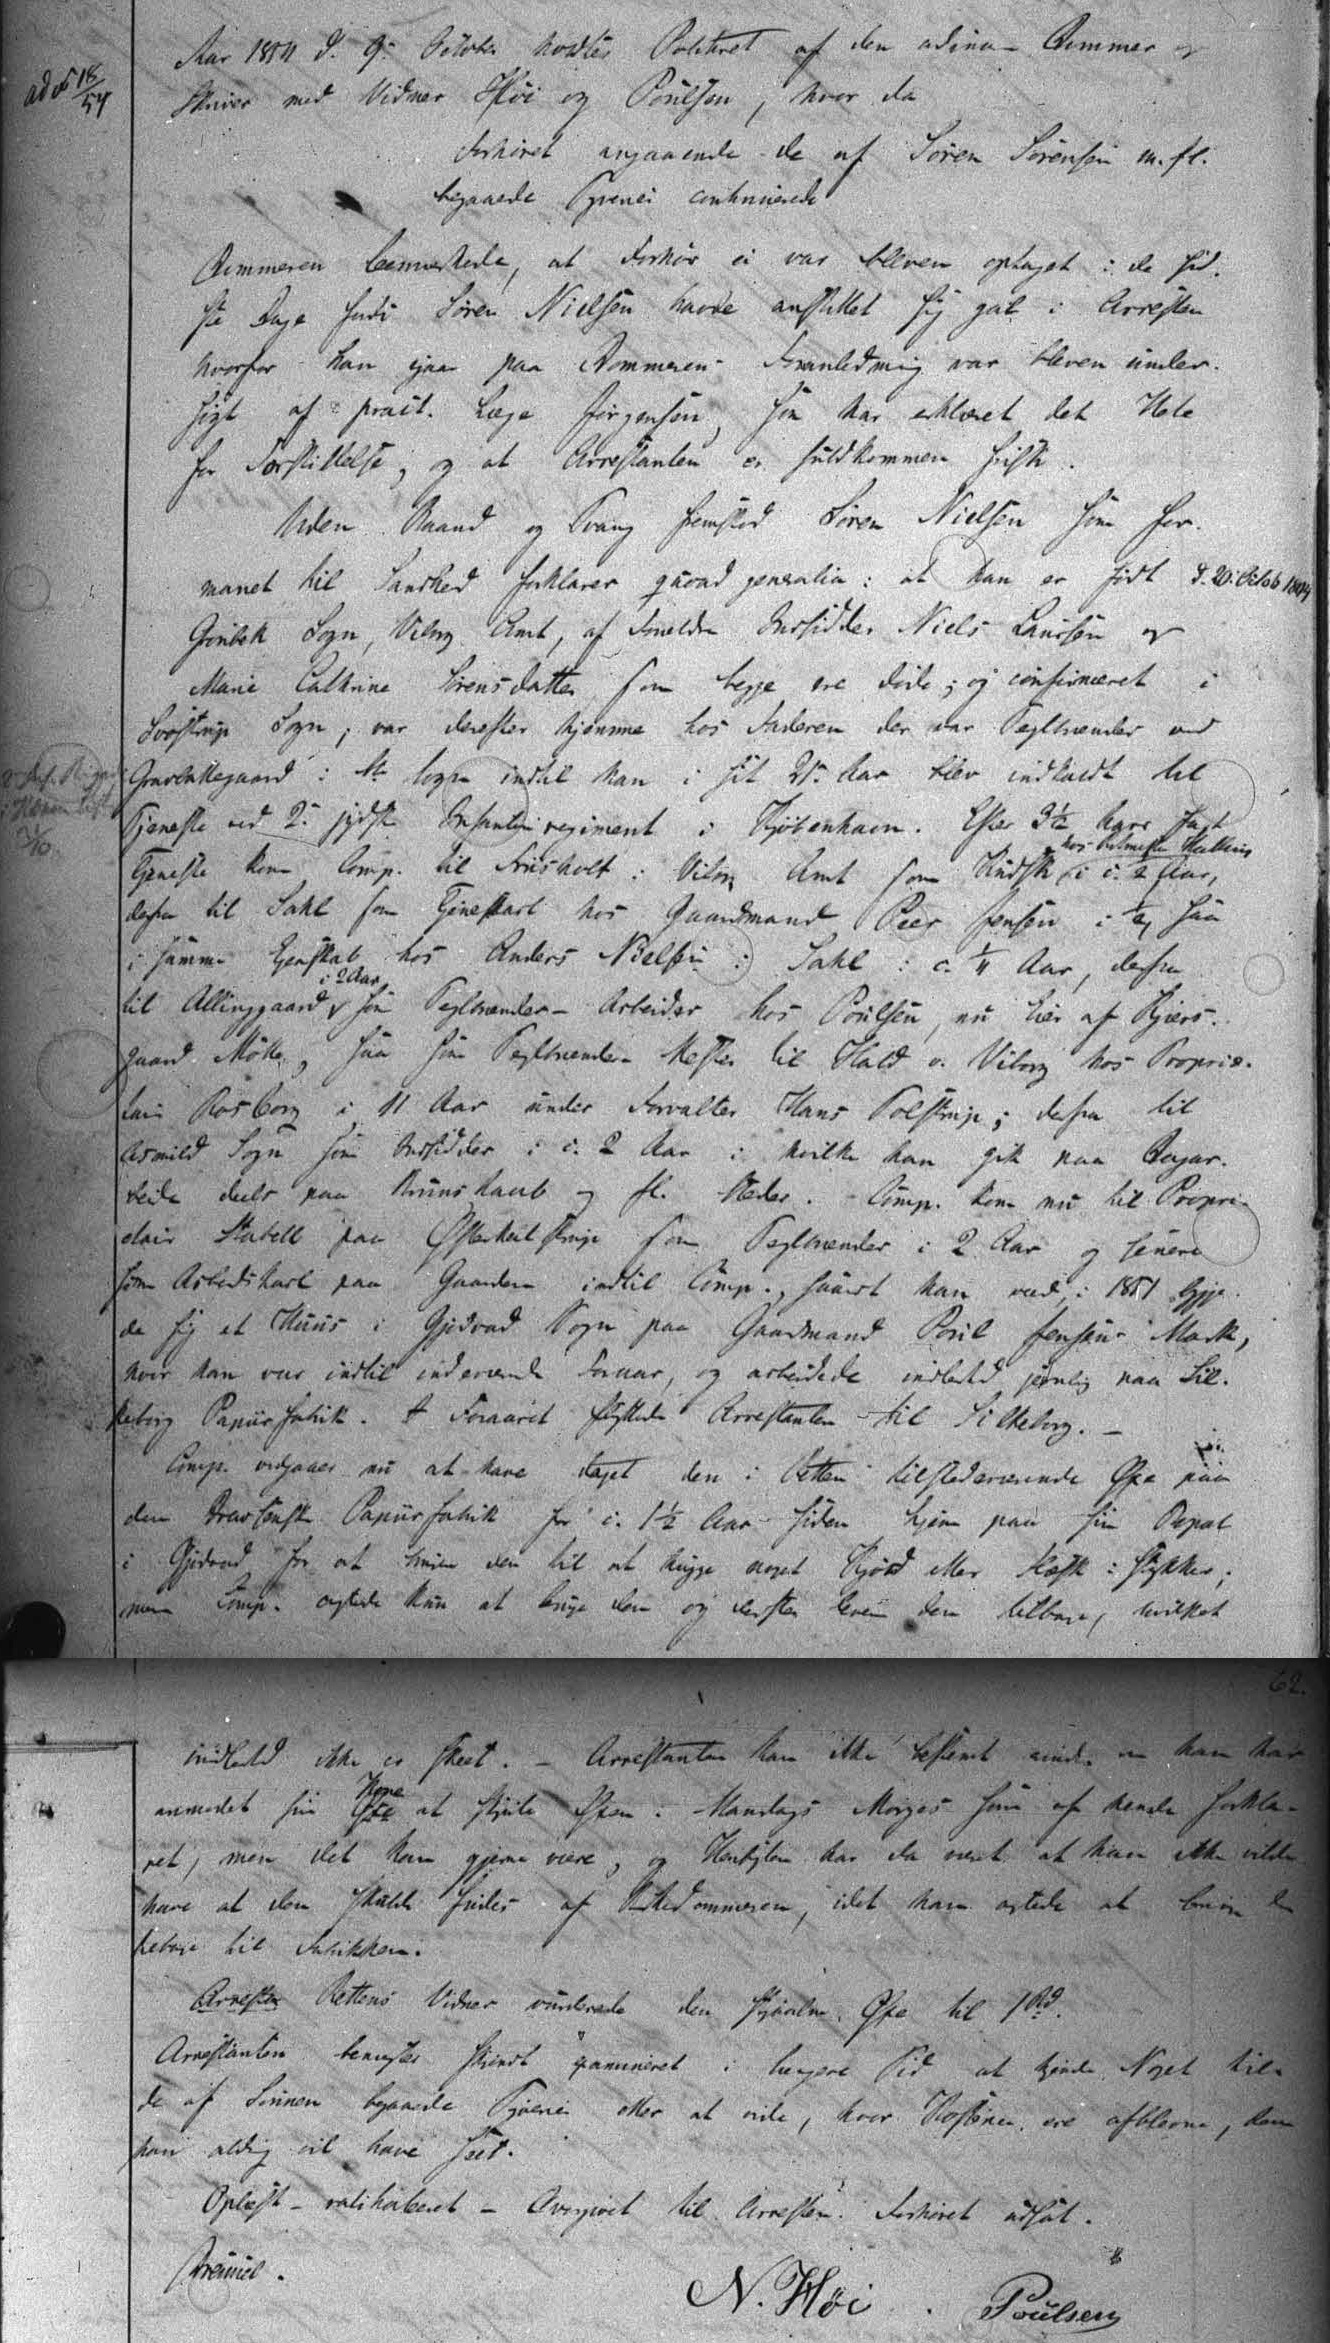 ad No 18/54
Aar 1854 d. 9. October holdtes Politiret af den ordinaire Dommer og
Skriver med Vidner Høi og Poulsen, hvor da
Forhøret angaaende de af Søren Sørensen m. fl.
begaaede Tyverier continuerede
Dommeren bemærkede, at Forhør ei var bleven optaget i de sid-
ste Dage fordi Søren Nielsen havde anstillet sig gal i Arresten
hvorfor han igaar paa Dommerens Foranledning var bleven under-
søgt af pract. Læge Jørgensen, som har erklæret det Hele
for Forstillelse, og at Arrestanten er fuldkommen frisk.
Uden Baand og Tvang fremstod Søren Nielsen som for-
manet til Sandhed forklarer quoad generalia: at han er født d. 20. Octob 1804
Sogn, Viborg Amt, af Forældre Indsidder Niels Laursen og
Marie Cathrine Sørensdatter som begge ere døde; og confirmeret i
Sogn; var derefter hjemme hos Faderen der var Teglbrænder ved
i Sogn indtil han i sit 21. Aar blev indkaldt til
Tjeneste ved 2. jydske Infanteriregiment i Kjøbenhavn. Efter 3½ Aars fast
hos
Tjeneste kom Comp. til Friisholt i Viborg Amt som Kudsk i c. 2 Aar,
derfra til Sahl som Tjenestkarl hos Gaardmand Peer Jensen i ½, saa
i samme Egenskab hos Anders Nielsen i Sahl i c. ¼ Aar, derfra
i 2 Aar
til Allinggaard som Teglbrænder-Arbeider hos Poulsen, nu Eier af Kjærs-
gaard Mølle, saa som Teglbrænder Mester til Hald v. Viborg hos Proprie-
tair Rosborg i 11 Aar under Forvalter Hans Tolstrup; derfra til
Asmild Sogn som Indsidder i c. 2 Aar i hvilke han gik paa Dagar-
beide deels paa Bruunshaab og fl. Steder. Comp. kom nu til Propri-
etair Stabell paa Østerkeilstrup som Teglbrænder i 2 Aar og senere
som Arbeidskarl paa Gaarden indtil Comp., saavidt han veed, i 1851 bygge-
de sig et Huus i Gjødvad Sogn paa Gaardmand Poul Jensens Mark,
hvor han var indtil indeværende Foraar, og arbeidede imidlertid jevnlig paa Sil-
keborg Papiirfabrik. I Foraaret flyttede Arrestanten til Silkeborg. –
Comp. vedgaaer nu at have taget den i Retten tilstedeværende Øxe paa
den Drewsenske Papiirfabrik for c. 1½ Aar siden hjem paa sin Bopæl
i Gjødvad for at bruge den til at hugge noget Kjød eller Flesk i Stykker;
men Comp. agtede kun at bruge den og derefter levere den tilbage, hvilket
62.
imidlertid ikke er skeet. – Arrestanten kan ikke bestemt minde om han har
Kone
anmodet sin Øxe at skjule Øxen i Mandags Morges som af hende forkla-
ret, men det kan gjerne være, og Hensigten har da været at han ikke vilde
have at den skulde findes af Birkedommeren, idet han agtede at bringe den
tilbage til Fabrikken.
Arresten Rettens Vidner vurderede den stjaalne Øxe til 1 Rd.
Arrestanten benegter skjøndt examineret i længere Tid at kjende Noget til
de af Sønnen begaaede Tyverier eller at vide, hvor Kosterne ere afblevne, dem
han aldrig vil have seet.
Oplæst – ratihaberet – Overgivet til Arresten. Forhøret udsat.
Drewsel.
N. Høi. Poulsen